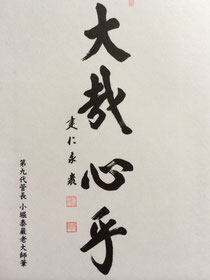 大哉心乎
建仁泰巌
第九代管長 小堀泰巖老大師筆